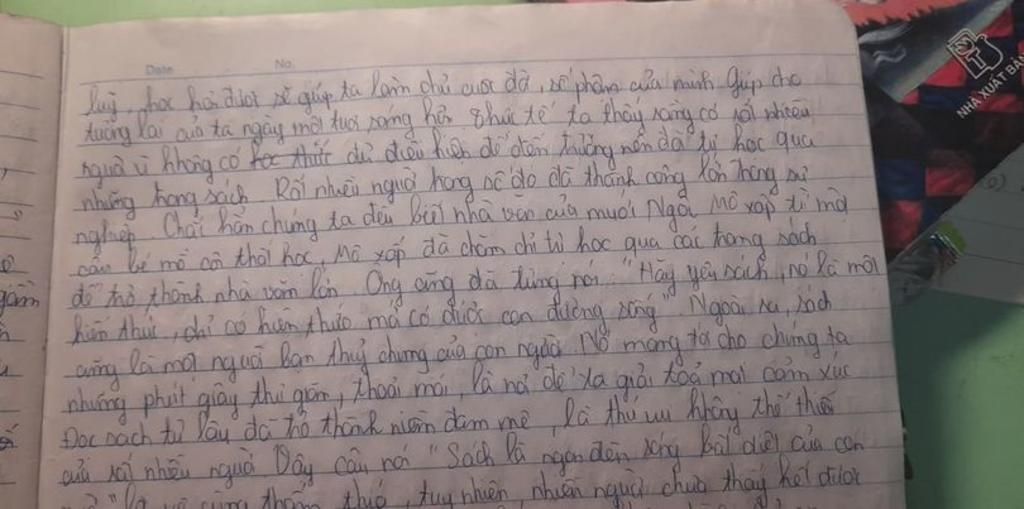 Date No.
luỹ, học hỏi được sẽ giúp ta làm chủ cuộc đời, số phận của mình. Giúp cho
tương lai của ta ngày một tươi sáng hơn. Thực tế ta thấy rằng có rất nhiều
người vì không có học thức đủ điều kiện để đến trường nên đã tự học qua
những trang sách. Rất nhiều người trong số đó đã thành công lớn trong sự
nghiệp. Chắc hẳn chúng ta đều biết nhà văn của muôn Ngôi Mô xấp từ một
cậu bé mồ côi thất học, Mô xấp đã chăm chỉ tự học qua các trang sách
để trở thành nhà văn lớn. Ông cũng đã từng nói: "Hãy yêu sách, nó là một
kiến thức, chỉ có kiến thức mới có được con đường sống". Ngoài ra, sách
cũng là một người bạn thuỷ chung của con người. Nó mang tới cho chúng ta
những phút giây thư giãn, thoải mái, là nơi để ta giải toả mọi cảm xúc
Đọc sách từ lâu đã trở thành niềm đam mê, là thú vui không thể thiếu
của rất nhiều người. Dẫy câu nói "Sách là ngọn đèn sáng bất diệt của con
" là vô cùng thấm thía, tuy nhiên, nhiều người chưa thấy hết được
NHÀ XUẤT BẢN